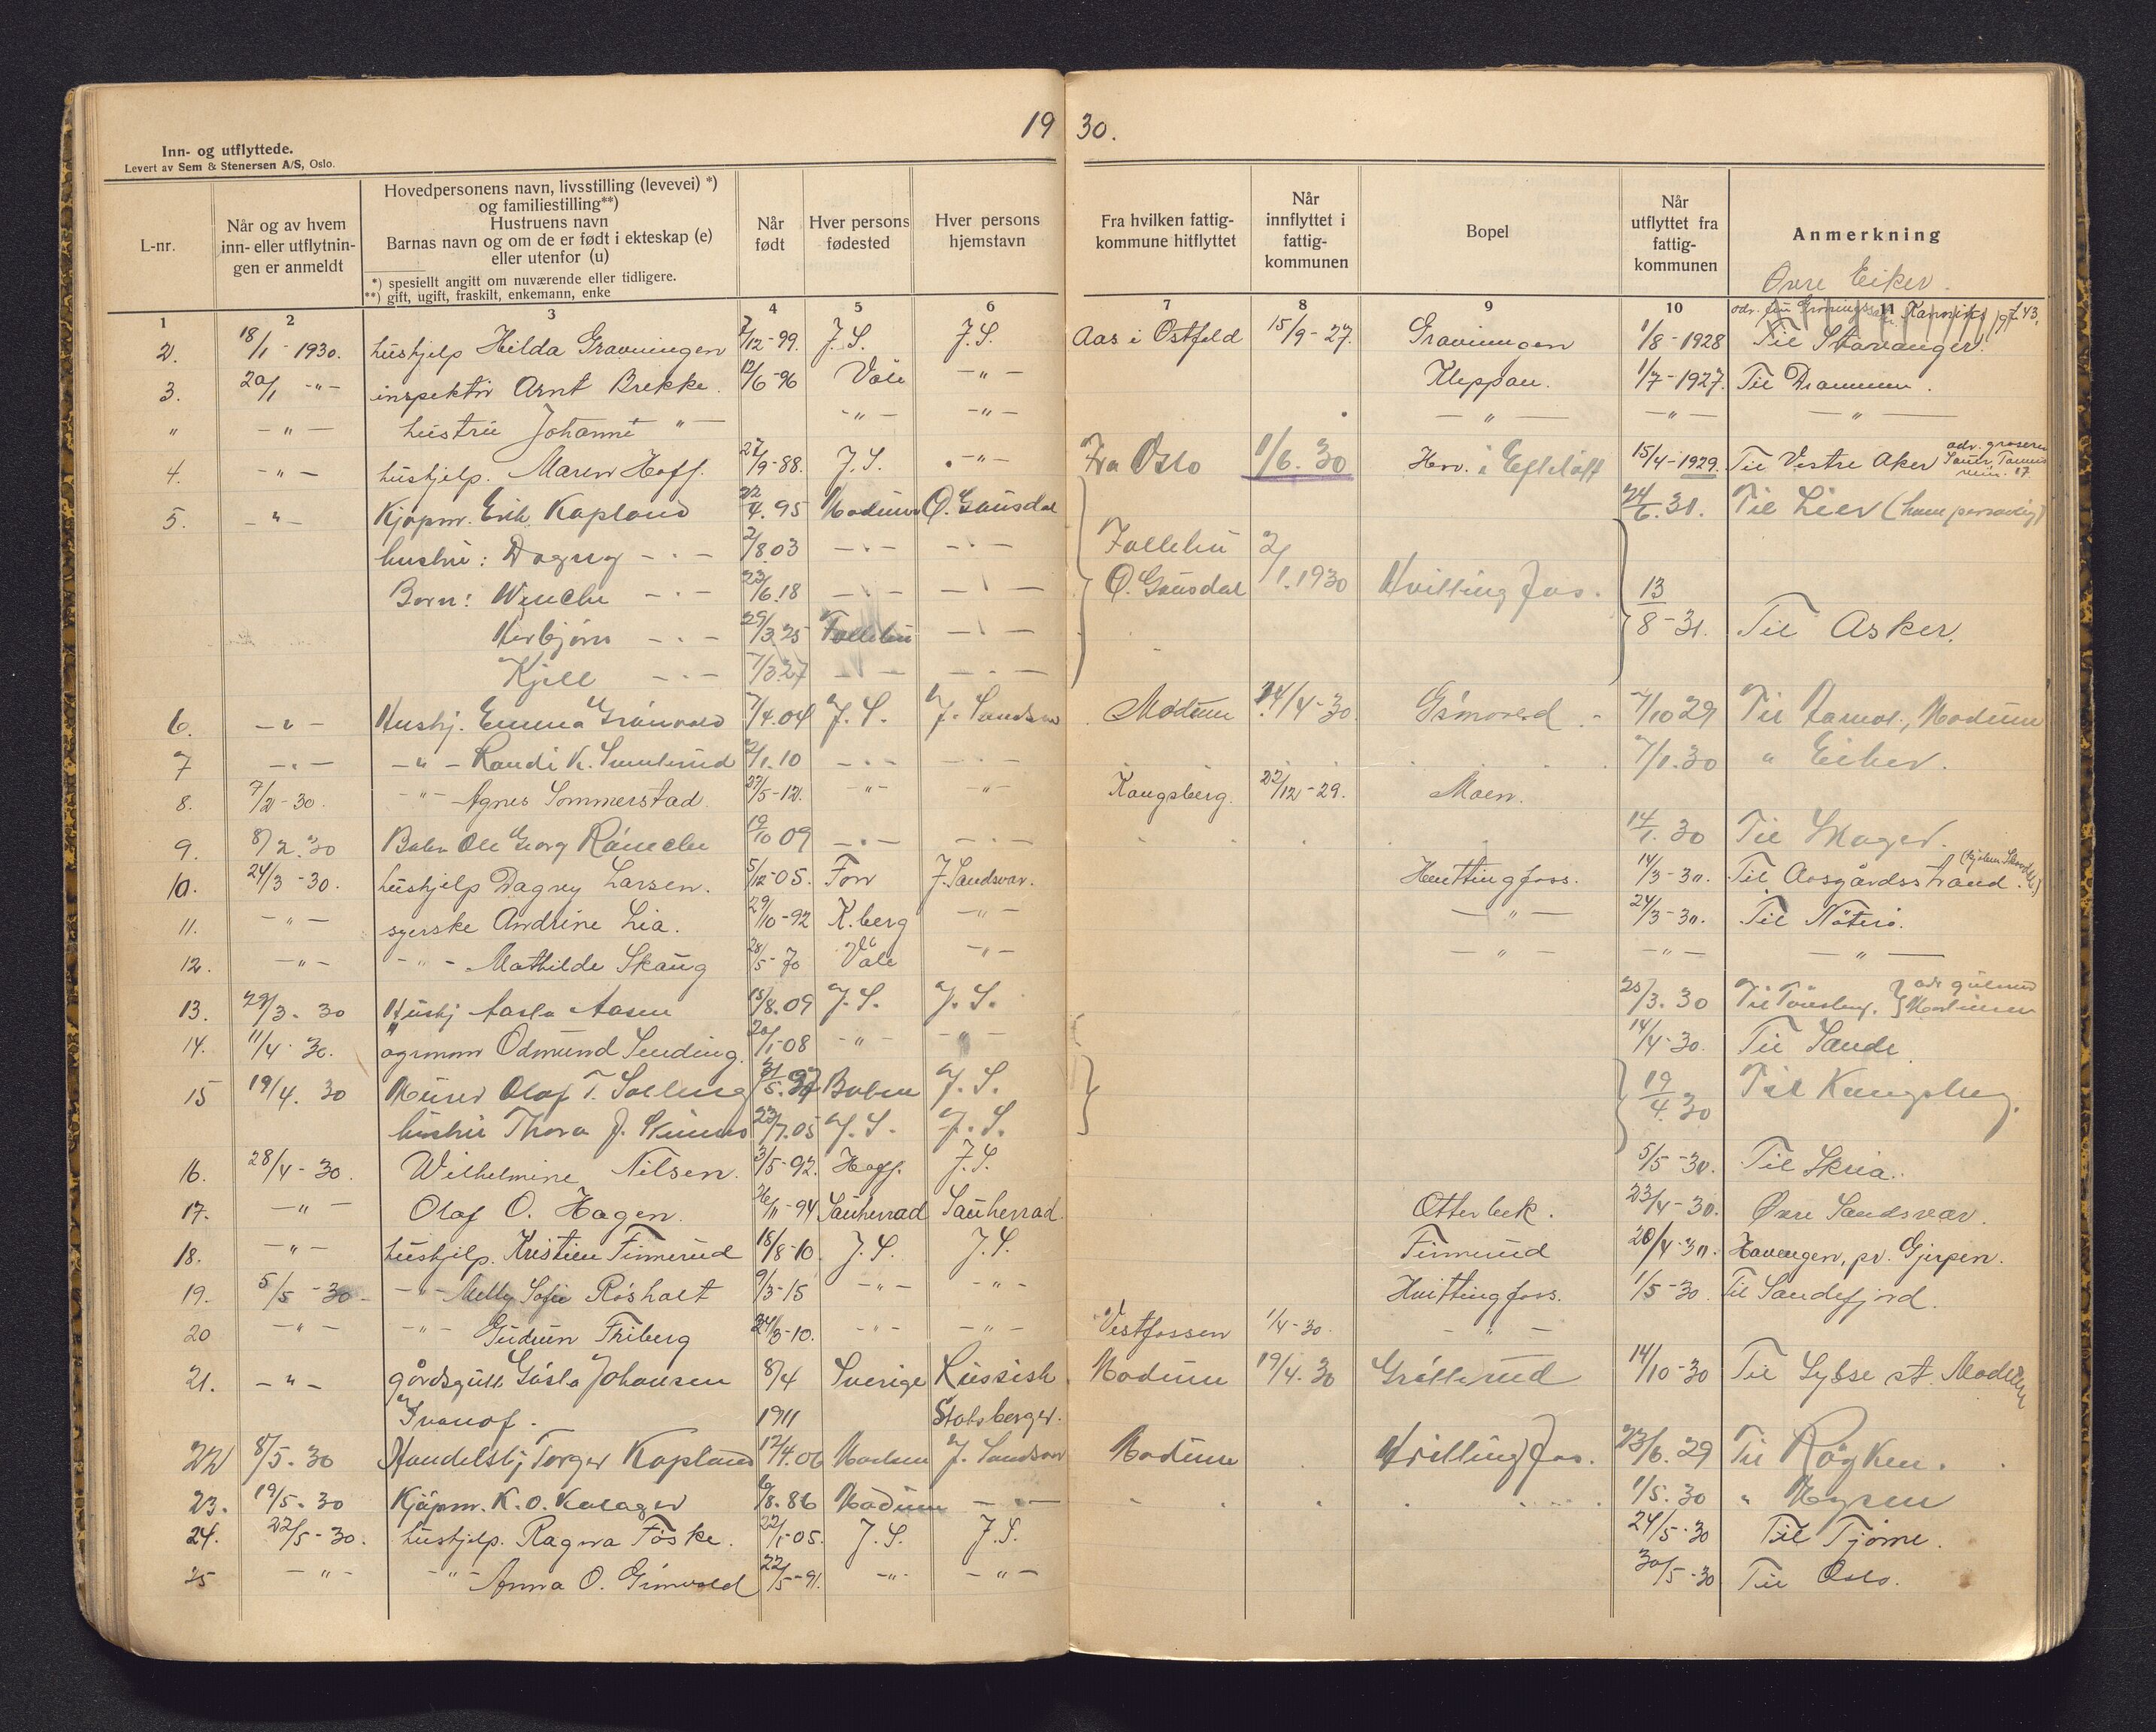 19 30.
Inn- og utflyttede.
Levert av Sem & Stenersen A/S, Oslo.
L-nr.
Når og av hvem
inn- eller utflytnin-
gen er anmeldt
Hovedpersonens navn, livsstilling (levevei) *)
og familiestilling**)
Hustruens navn
Barnas navn og om de er født i ekteskap (e)
eller utenfor (u)
*) spesiellt angitt om nuværende eller tidligere.
**) gift, ugift, fraskilt, enkemann, enke
Når
født
Hver persons
fødested
Hver persons
hjemstavn
Fra hvilken fattig-
kommune hitflyttet
Når
innflyttet i
fattig-
kommunen
Bopel
Når
utflyttet fra
fattig-
kommunen
Anmerkning
Øvre Eiker.
1 2 3 4 5 6 7 8 9 10 11
2. 18/1 - 1930. hushjelp Hilda Gravningen 7/12-99. J.S. J.S. Aas i Østfold 15/9-27. Gravningen 1/8-1928 Til Stavanger.
3. 20/1 -"- inspektør Arnt Brekke. 12/6-96 Våle -"- Kleppan. 1/7-1927. Til Drammen.
" -"- hustru Johanne " -"- -"- -"- -"- -"-
4. -"- hushjelp. Maren Hoff. 27/9-88. J.S. -"- Fra Oslo 1/6.30 Hov. i Efteløtt 15/4-1929. Til Vestre Aker
5. -"- Kjøpm. Erik Kopland 22/4.95 Modum Ø. Gausdal 24/6.31. Til Lier (ham personlig)
hustru: Dagny -"- 2/8.03 -"- -"- Follebu 2/1.1930
Born: Wenche -"- 23/6.18 -"- -"- Ø. Gausdal Hvittingfos. 13/8-31. Til Asker.
Herbjørn -"- 29/3.25 Follebu -"-
Kjell -"- 7/3.27 -"- -"-
6. -"- Hushj. Emma Grønvold 7/4.04 J.S. J. Sandsv. Modum 24/4-30. 7/10 29 Til Aamot, Modum
7 -"- -"- Randi K. 2/1.10 -"- -"- 7/1.30 " Eiker.
8. 7/2-30. -"- Agnes Sommerstad. 27/5-12. -"- -"- Kongsberg. 22/12-29. Moen.
9. 8/2.30 Ole Georg 19/10 09 -"- -"- 14/1.30 Til Skoger.
10. 24/3-30. hushjelp Dagny Larsen. 5/12-05. Fon J. Sandsvær. Hvittingfoss. 14/3-30. Til Aasgårdsstrand.
11. -"- syerske Andrine Lia. 29/10-92 K.berg -"- -"- 24/3-30. Til Nøterø.
12. -"- -"- Mathilde Skaug 28/5-70 Våle -"- -"- -"- -"-
13. 29/3.30 Hushj Aasta Aasen 15/8.09 J.S. J.S. 25/3.30 Til Tønsberg.
14. 11/4.30. agronom Odmund Sending. 20/1-08 -"- -"- 14/4-30. Til Sande.
15 19/4.30 Murer Olaf T. Solberg J.S. 19/4.30 Til Kongsberg.
hustru Thora J. 23/7.05 J.S. J.S.
16. 28/4-30. Wilhelmine Nilsen. 3/5-92. Hoff. J.S. 5/5-30. Til Skien.
17. -"- Olaf O. Hagen. 26/11-94 Sauherrad Sauherrad. Otterbek. 23/4-30. Øvre Sandsvær.
18. -"- hushjelp. Kristine Finnerud 18/8-10. J.S. J.S. Finnerud 20/4-30. Havengen, pr. Gjerpen.
19. 5/5-30- -"- Melly Sofie Røsholt 9/3-15 -"- -"- Hvittingfoss. 1/5-30. Til Sandefjord.
20 -"- -"- Gudrun Friberg 24/3-10. -"- -"- Vestfossen 1/4-30. -"-
21. -"- gårdsgutt Gösta Johansen 8/4 Sverige Russisk Modum 19/4.30 14/10-30 Til Lybse st.
Ivanof. 1911 Statsborger.
22 8/5.30 Handelsbj Torger Kopland 17/4.06 Modum J. Sandsvær Modum Hvittingfos. 23/6.29 Til Røyken.
23. 19/5.30 Kjøpm. K.O. 6/8.86 Modum -"- 1/5.30 " Mysen
24. 22/5-30. hushjelp. Ragna Føske. 22/1-05. J.S. J.S. 24/5-30 Til Tjøme.
25 -"- -"- Anna O. Grinvold 22/5-91. -"- -"- 30/5-30 Til Oslo.